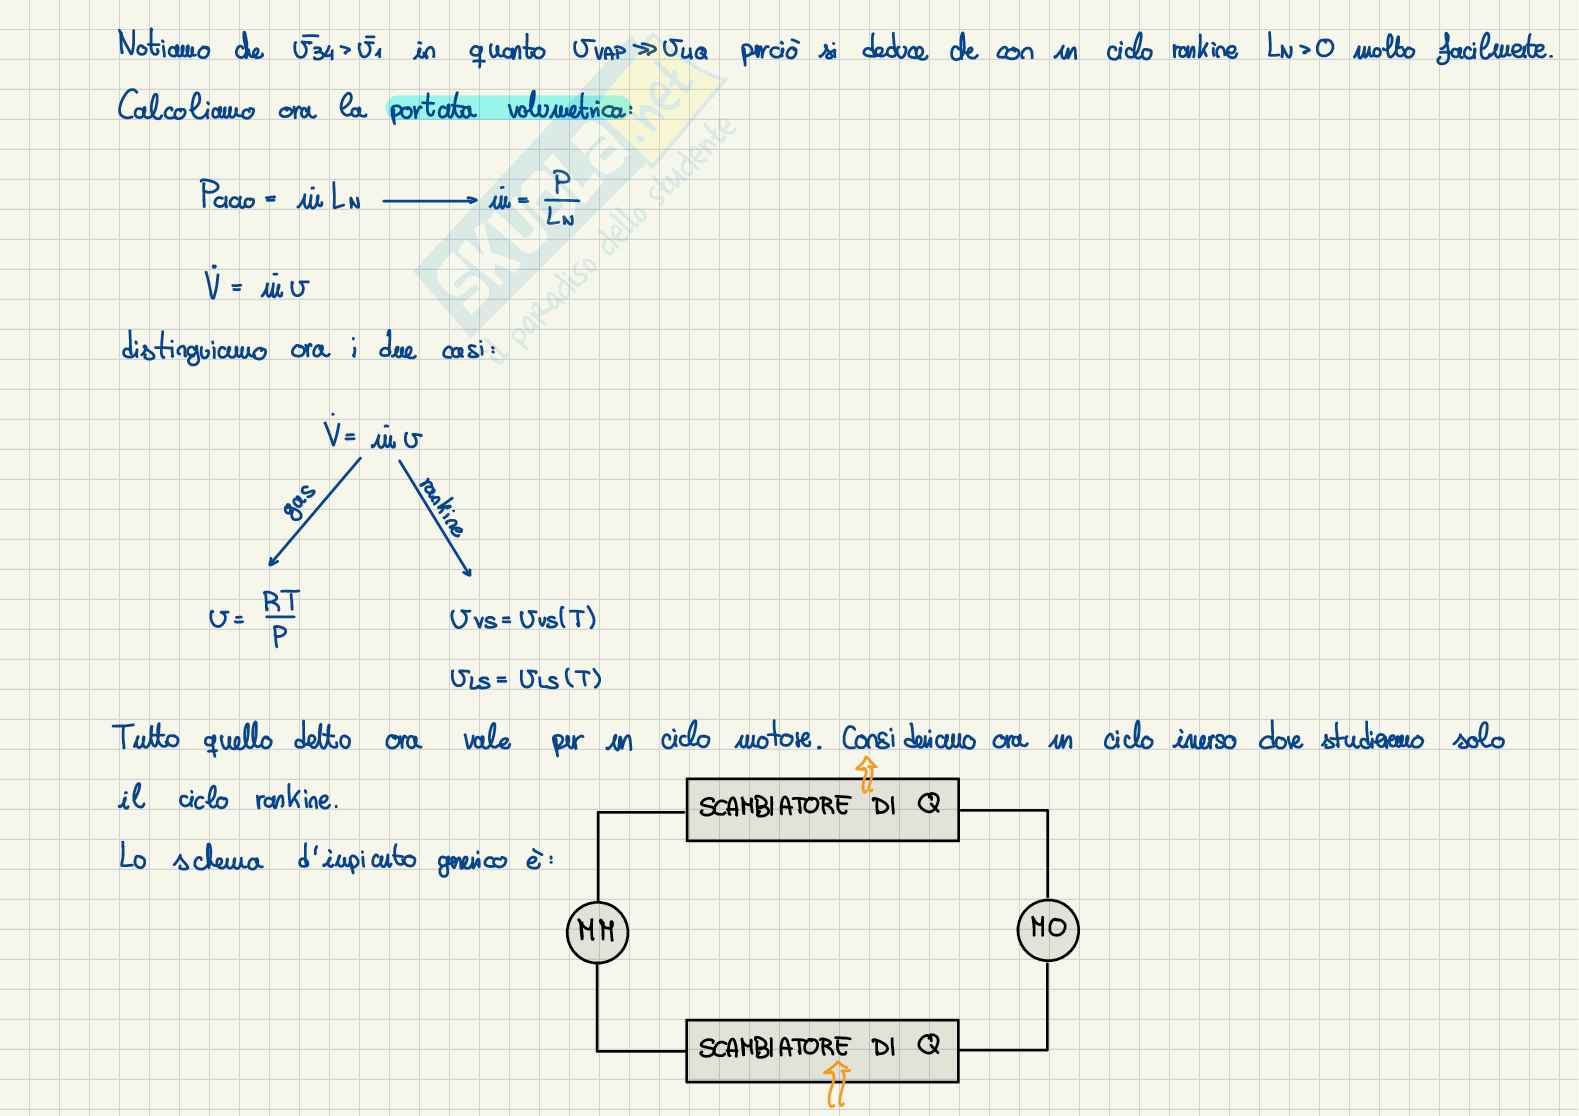 Notiamo che v̄34 > v̄1 in quanto vVAP >> vLIQ perciò si deduce che con un ciclo rankine LN > 0 molto facilmente.
Calcoliamo ora la portata volumetrica:
Pciclo = ṁ LN → ṁ = P / LN
V̇ = ṁ v
distinguiamo ora i due casi:
V̇ = ṁ v
gas
rankine
v = RT / P
vVS = vVS(T)
vLS = vLS(T)
Tutto quello detto ora vale per un ciclo motore. Consideriamo ora un ciclo inverso dove studieremo solo
il ciclo rankine.
Lo schema d'impianto generico è:
SCAMBIATORE DI Q
MM
MO
SCAMBIATORE DI Q
SKUOLA.net
il paradiso dello studente